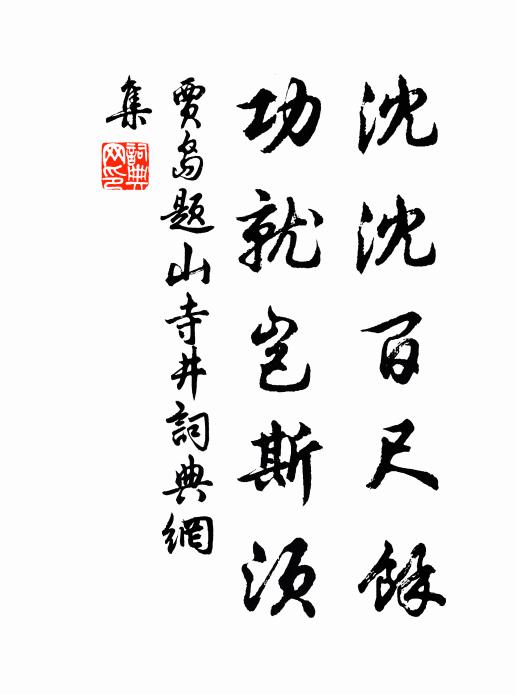 沈沈百尺餘
功就岂斯須
賈島題山寺井詞典網
集
詞典
网印